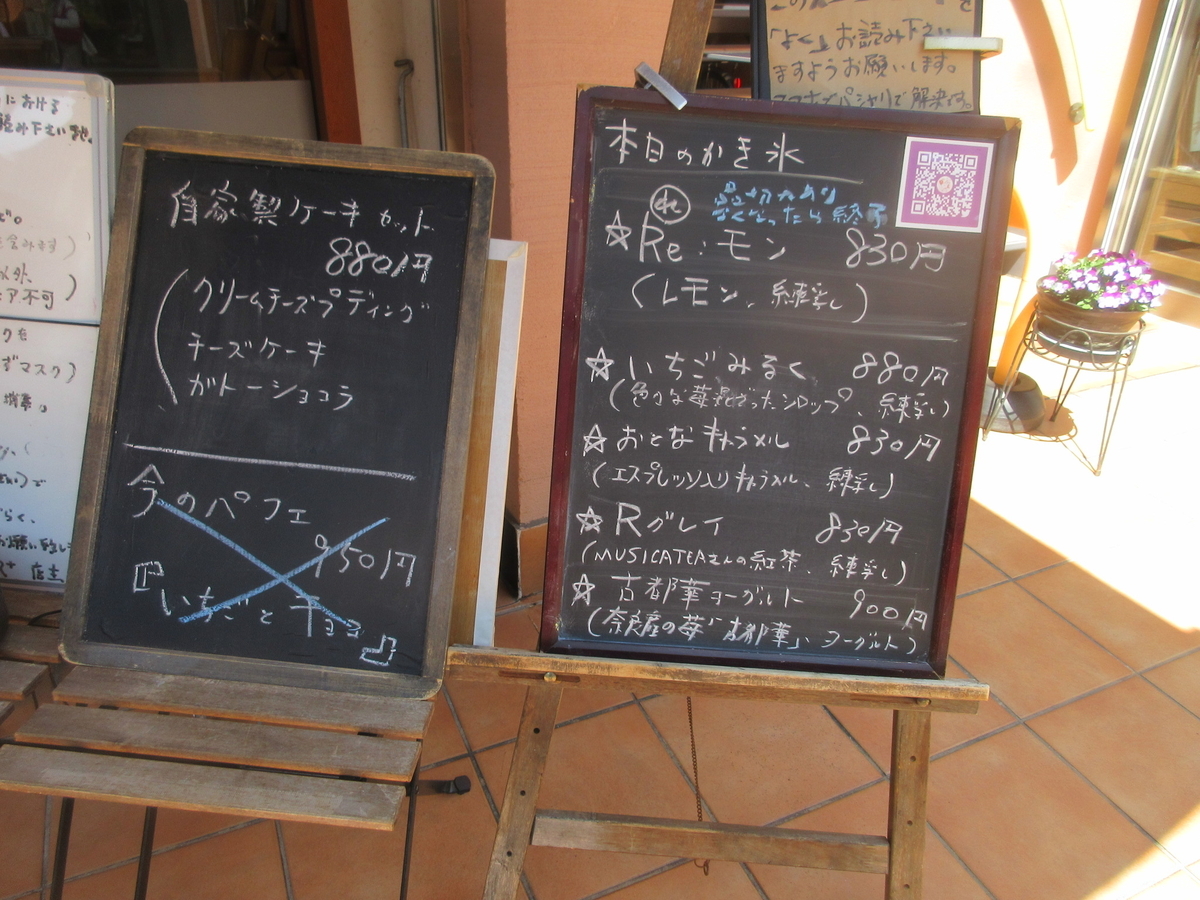 自家製ケーキセット
880円
クリームチーズプディング
チーズケーキ
ガトーショコラ
今のパフェ
950円
『いちごとチョコ』
本日のかき氷
品切れあり
なくなったら終了
☆Re:モン 830円
(レモン、練乳)
☆いちごみるく 880円
シロップ、練乳)
☆おとなキャラメル 830円
(エスプレッソ入りキャラメル、練乳)
☆Rグレイ 830円
(MUSICATEAさんの紅茶、練乳)
☆古都華ヨーグルト 900円
(奈良産の苺「古都華」、ヨーグルト)
「よく」お読み下さい
ますようお願いします。
スマホでパシャリで解決です。
における
み下さい
以外
不可
マスク)
店主